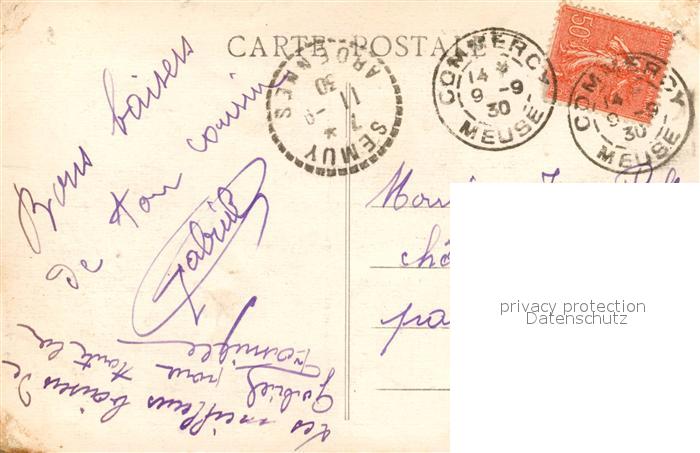 CARTE POSTALE
COMMERCY
14 -9
9 30
MEUSE
COMMERCY
14 -9
9 30
MEUSE
50c
SEMUY
7
11 -9
30
ARDENNES
Bons baisers
de ton cousin
Gabriel
Les meilleurs baisers de
Gabriel pour toute la
Famille
privacy protection
Datenschutz